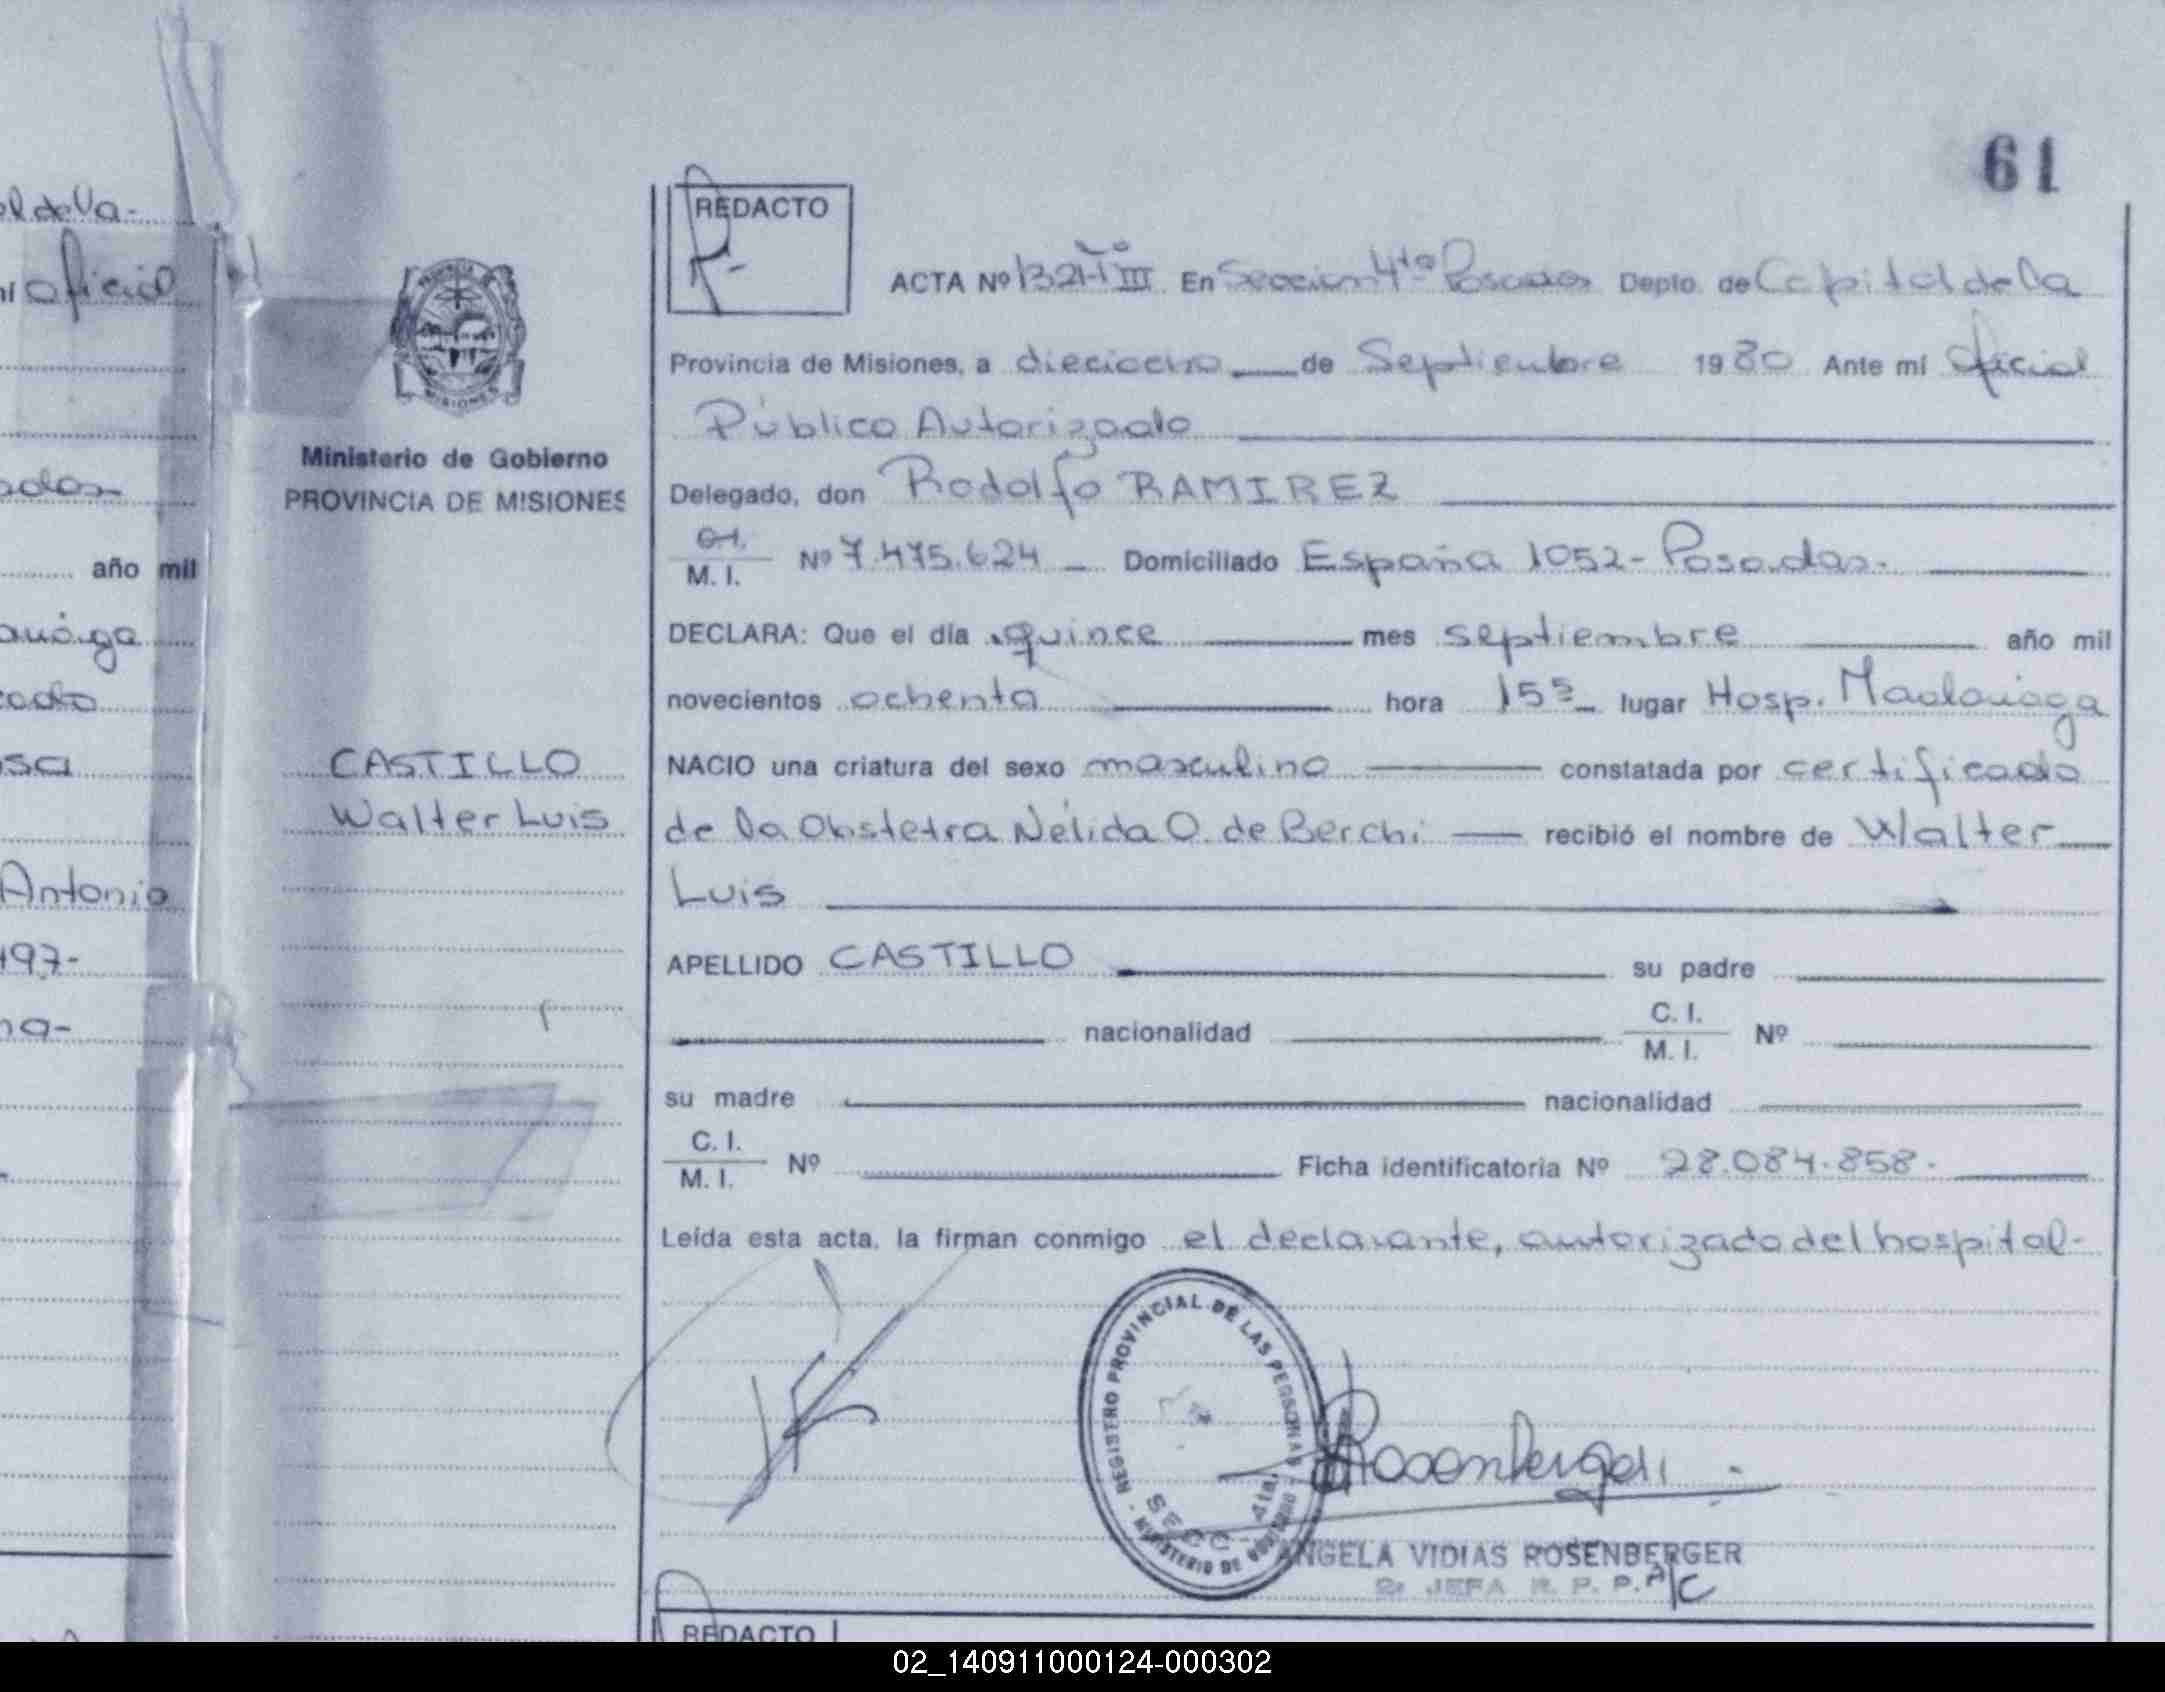 61
el de la-
mí oficial
adas-
año mil
auága
cado
osa
Antonio
497-
na-
PROVINCIA
MISIONES
Ministerio de Gobierno
PROVINCIA DE MISIONES
CASTILLO
Walter Luis
REDACTO
ACTA Nº 1321-T°III En Seccion 4ta Posadas Depto. de Capital de la
Provincia de Misiones, a dieciocho de Septiembre 1980 Ante mí Oficial
Público Autorizado
Delegado, don Rodolfo RAMIREZ
C.I. M. I. Nº 7.475.624 - Domiciliado España 1052- Posadas.
DECLARA: Que el día quince mes septiembre año mil
novecientos ochenta hora 15⁵ lugar Hosp. Madariaga
NACIO una criatura del sexo masculino constatada por certificado
de la Obstetra Nélida O. de Berchi recibió el nombre de Walter
Luis
APELLIDO CASTILLO su padre
nacionalidad C. I. M. I. Nº
su madre nacionalidad
C. I. M. I. Nº Ficha identificatoria Nº 28.084.858.
Leída esta acta, la firman conmigo el declarante, autorizado del hospital-
REGISTRO PROVINCIAL DE LAS PERSONAS - MINISTERIO DE GOBIERNO -
SECC. 4ta.
Rosenberger
ANGELA VIDIAS ROSENBERGER
2a JEFA R. P. P. A/C
REDACTO
02_140911000124-000302